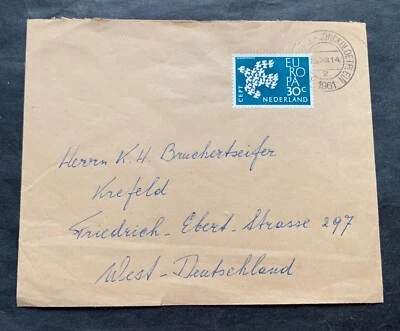 EU
RO
PA
CEPT
30c
NEDERLAND
1961
Herrn K. H. Bruchertseifer
Krefeld
Friedrich-Ebert-Strasse 297
West-Deutschland